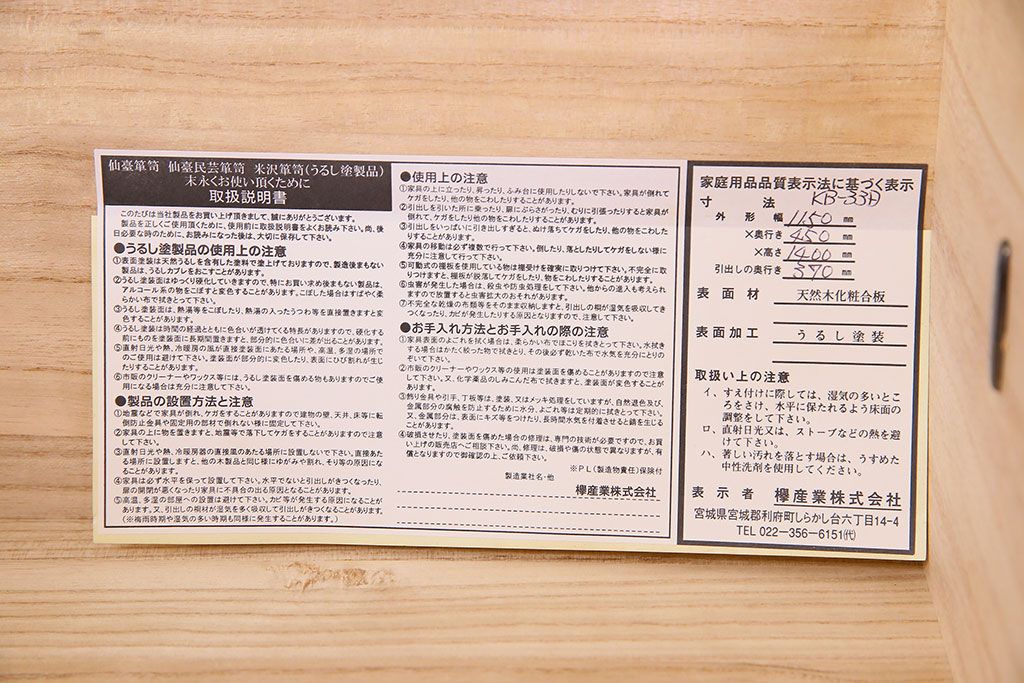 仙臺箪笥 仙臺民芸箪笥 米沢箪笥(うるし塗製品)
末永くお使い頂くために
取扱説明書
このたびは当社製品をお買い上げ頂きまして、誠にありがとうございます。
製品を正しくご使用頂くために、使用前に取扱説明書をよくお読み下さい。尚、後
日必要な時のために、お読みになった後は、大切に保存して下さい。
●うるし塗製品の使用上の注意
①表面塗装は天然うるしを含有した塗料で塗上げておりますので、製造後まもない
製品は、うるしカブレをおこすことがあります。
②うるし塗装面はゆっくり硬化していきますので、特にお買い求め後まもない製品は、
アルコール系の物をこぼすと変色することがあります。こぼした場合はすばやく柔
らかい布で拭きとって下さい。
③うるし塗装面は、熱湯等をこぼしたり、熱湯の入ったうつわ等を直接置きますと変
色することがあります。
④うるし塗装は時間の経過とともに色合いが透けてくる特長がありますので、硬化する
前にものを塗装面に長期間置きますと、部分的に色合いに差が出ることがあります。
⑤直射日光や熱、冷暖房の風が直接塗装面にあたる場所や、高温、多湿の場所で
のご使用は避けて下さい。塗装面が部分的に変色したり、表面にひび割れが生じ
たりすることがあります。
⑥市販のクリーナーやワックス等には、うるし塗装面を傷める物もありますのでご使
用になる場合は充分に注意して下さい。
●製品の設置方法と注意
①地震などで家具が倒れ、ケガをすることがありますので建物の壁、天井、床等に転
倒防止金具や固定用の部材で倒れない様に固定して下さい。
②家具の上に物を置きますと、地震等で落下してケガをすることがありますので注意
して下さい。
③直射日光や熱、冷暖房器の直接風のあたる場所に設置しないで下さい。直接あた
る場所に設置しますと、他の木製品と同じ様にゆがみや割れ、そり等の原因にな
ることがあります。
④家具は必ず水平を保って設置して下さい。水平でないと引出しがきつくなったり、
扉の開閉が悪くなったり家具に不具合の出る原因となることがあります。
⑤高温、多湿の部屋への設置は避けて下さい。カビ等が発生する原因になることが
あります。又、引出しの桐材が湿気を多く吸収して引出しがきつくなることがあります。
(※梅雨時期や湿気の多い時期も同様に発生することがあります。)
●使用上の注意
①家具の上に立ったり、昇ったり、ふみ台に使用したりしないで下さい。家具が倒れて
ケガをしたり、他の物をこわしたりすることがあります。
②引出しを引いた所に乗ったり、扉にぶらさがったり、むりに引張ったりすると家具が
倒れて、ケガをしたり他の物をこわしたりすることがあります。
③引出しをいっぱいに引き出しすぎると、ぬけ落ちてケガをしたり、他の物をこわした
りすることがあります。
④家具の移動は必ず複数で行って下さい。倒したり、落としたりしてケガをしない様に
充分に注意して行って下さい。
⑤可動式の棚板を使用している物は棚受けを確実に取りつけて下さい。不完全に取
りつけますと、棚板が脱落してケガをしたり、物をこわしたりすることがあります。
⑥虫害が発生した場合は、殺虫や防虫処理をして下さい。他からの進入も考えられ
ますので放置すると虫害拡大のおそれがあります。
⑦不完全な乾燥の布類等をそのまま収納しますと、引出しの桐が湿気を吸収してき
つくなったり、カビが発生したりする原因となりますので、注意して下さい。
●お手入れ方法とお手入れの際の注意
①家具表面のよごれを拭く場合は、柔らかい布でほこりを拭きとって下さい。水拭き
する場合はかたく絞った物で拭ききり、その後必ず乾いた布で水気を充分にとりの
ぞいて下さい。
②市販のクリーナーやワックス等の使用は塗装面を傷めることがありますので注意
して下さい。又、化学薬品のしみこんだ布で拭きますと、塗装面が変色することが
あります。
③飾り金具や引手、丁板等は、塗装、又はメッキ処理をしていますが、自然退色及び、
金属部分の腐触を防止するために水分、よごれ等は定期的に拭きとって下さい。
又、金属部分は、表面にキズ等をつけたり、長時間水気を付着させると錆を生じる
ことがあります。
④破損させたり、塗装面を傷めた場合の修理は、専門の技術が必要ですので、お買
い上げの販売店へご相談下さい。尚、修理は、破損や傷の状態で異なりますが、有
償となりますので御確認の上、ご依頼下さい。
※PL(製造物責任)保険付
製造業社名・他
欅産業株式会社
家庭用品品質表示法に基づく表示
寸法 KB-33H
外形幅 1150 ㎜
×奥行き 450 ㎜
×高さ 1400 ㎜
引出しの奥行き 370 ㎜
表面材 天然木化粧合板
表面加工 うるし塗装
取扱い上の注意
イ、すえ付けに際しては、湿気の多いとこ
ろをさけ、水平に保たれるよう床面の
調整をして下さい。
ロ、直射日光又は、ストーブなどの熱を避
けて下さい。
ハ、著しい汚れを落とす場合は、うすめた
中性洗剤を使用してください。
表示者 欅産業株式会社
宮城県宮城郡利府町しらかし台六丁目14-4
TEL 022-356-6151㈹